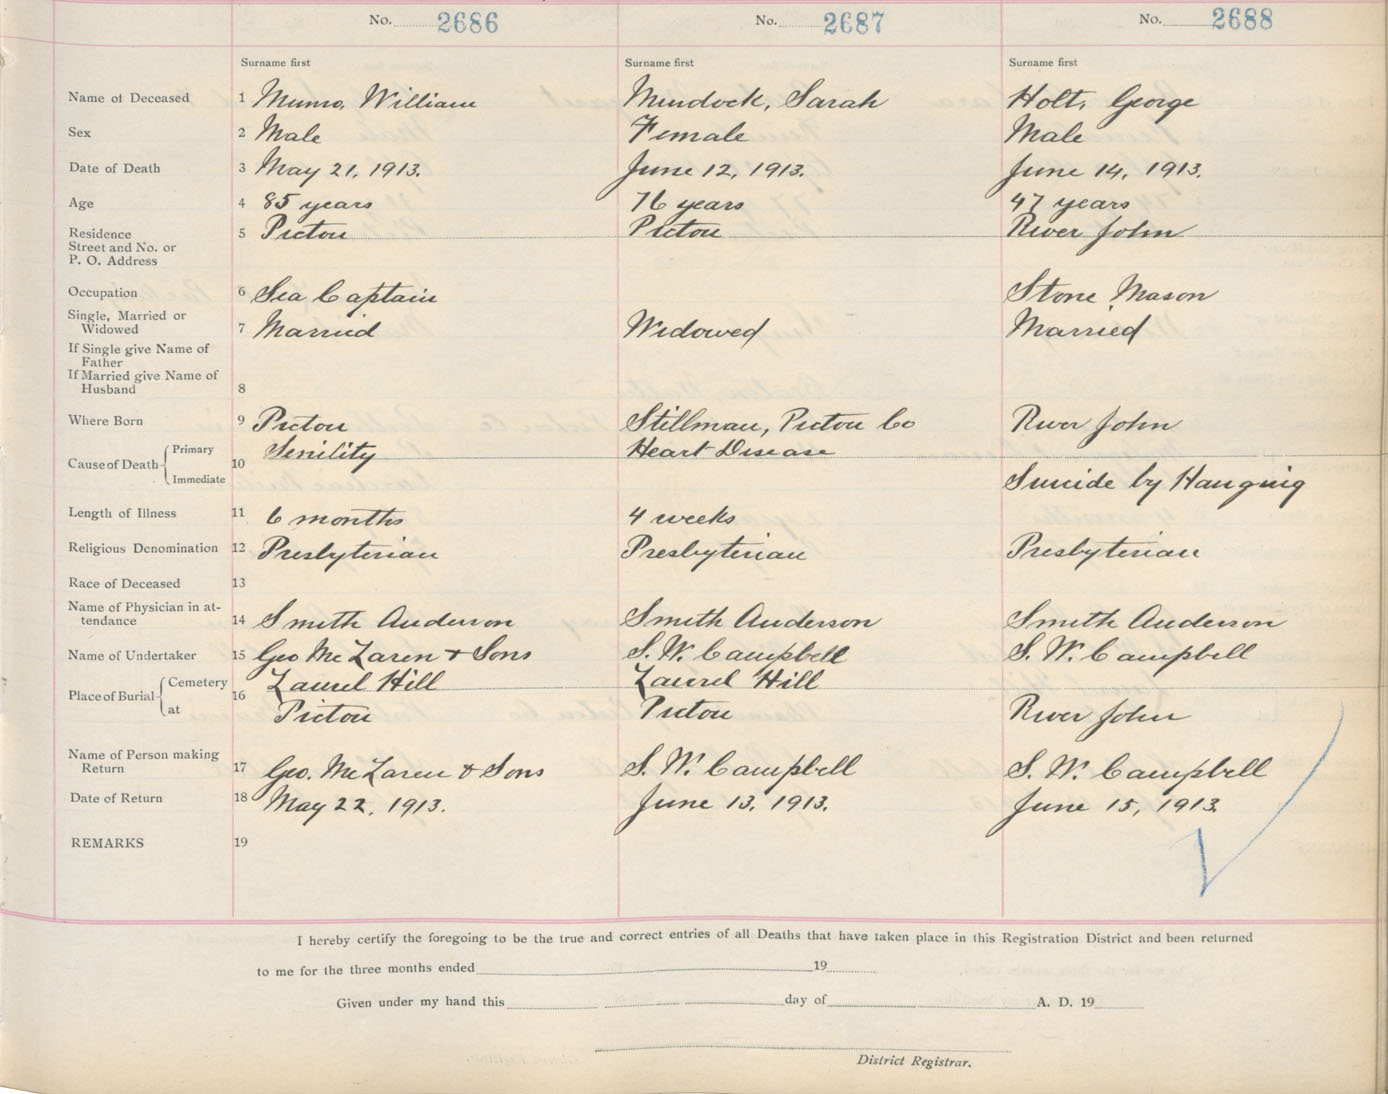 No. 2686 No. 2687 No. 2688
Surname first Surname first Surname first
Name of Deceased 1 Munro, William Murdock, Sarah Holt, George
Sex 2 Male Female Male
Date of Death 3 May 21, 1913. June 12, 1913. June 14, 1913.
Age 4 85 years 76 years 47 years
Residence 5 Pictou Pictou River John
Street and No. or
P. O. Address
Occupation 6 Sea Captain Stone Mason
Single, Married or
Widowed 7 Married Widowed Married
If Single give Name of
Father
If Married give Name of
Husband 8
Where Born 9 Pictou Stillman, Pictou Co River John
Cause of Death 10 Primary Senility Heart Disease
Immediate Suicide by Hanging
Length of Illness 11 6 months 4 weeks
Religious Denomination 12 Presbyterian Presbyterian Presbyterian
Race of Deceased 13
Name of Physician in at-
tendance 14 Smith Anderson Smith Anderson Smith Anderson
Name of Undertaker 15 Geo McLaren & Sons S. W. Campbell S. W. Campbell
Place of Burial 16 Cemetery Laurel Hill Laurel Hill
at Pictou Pictou River John
Name of Person making
Return 17 Geo. McLaren & Sons S. W. Campbell S. W. Campbell
Date of Return 18 May 22, 1913. June 13, 1913. June 15, 1913.
REMARKS 19
I hereby certify the foregoing to be the true and correct entries of all Deaths that have taken place in this Registration District and been returned
to me for the three months ended 19
Given under my hand this day of A. D. 19
District Registrar.